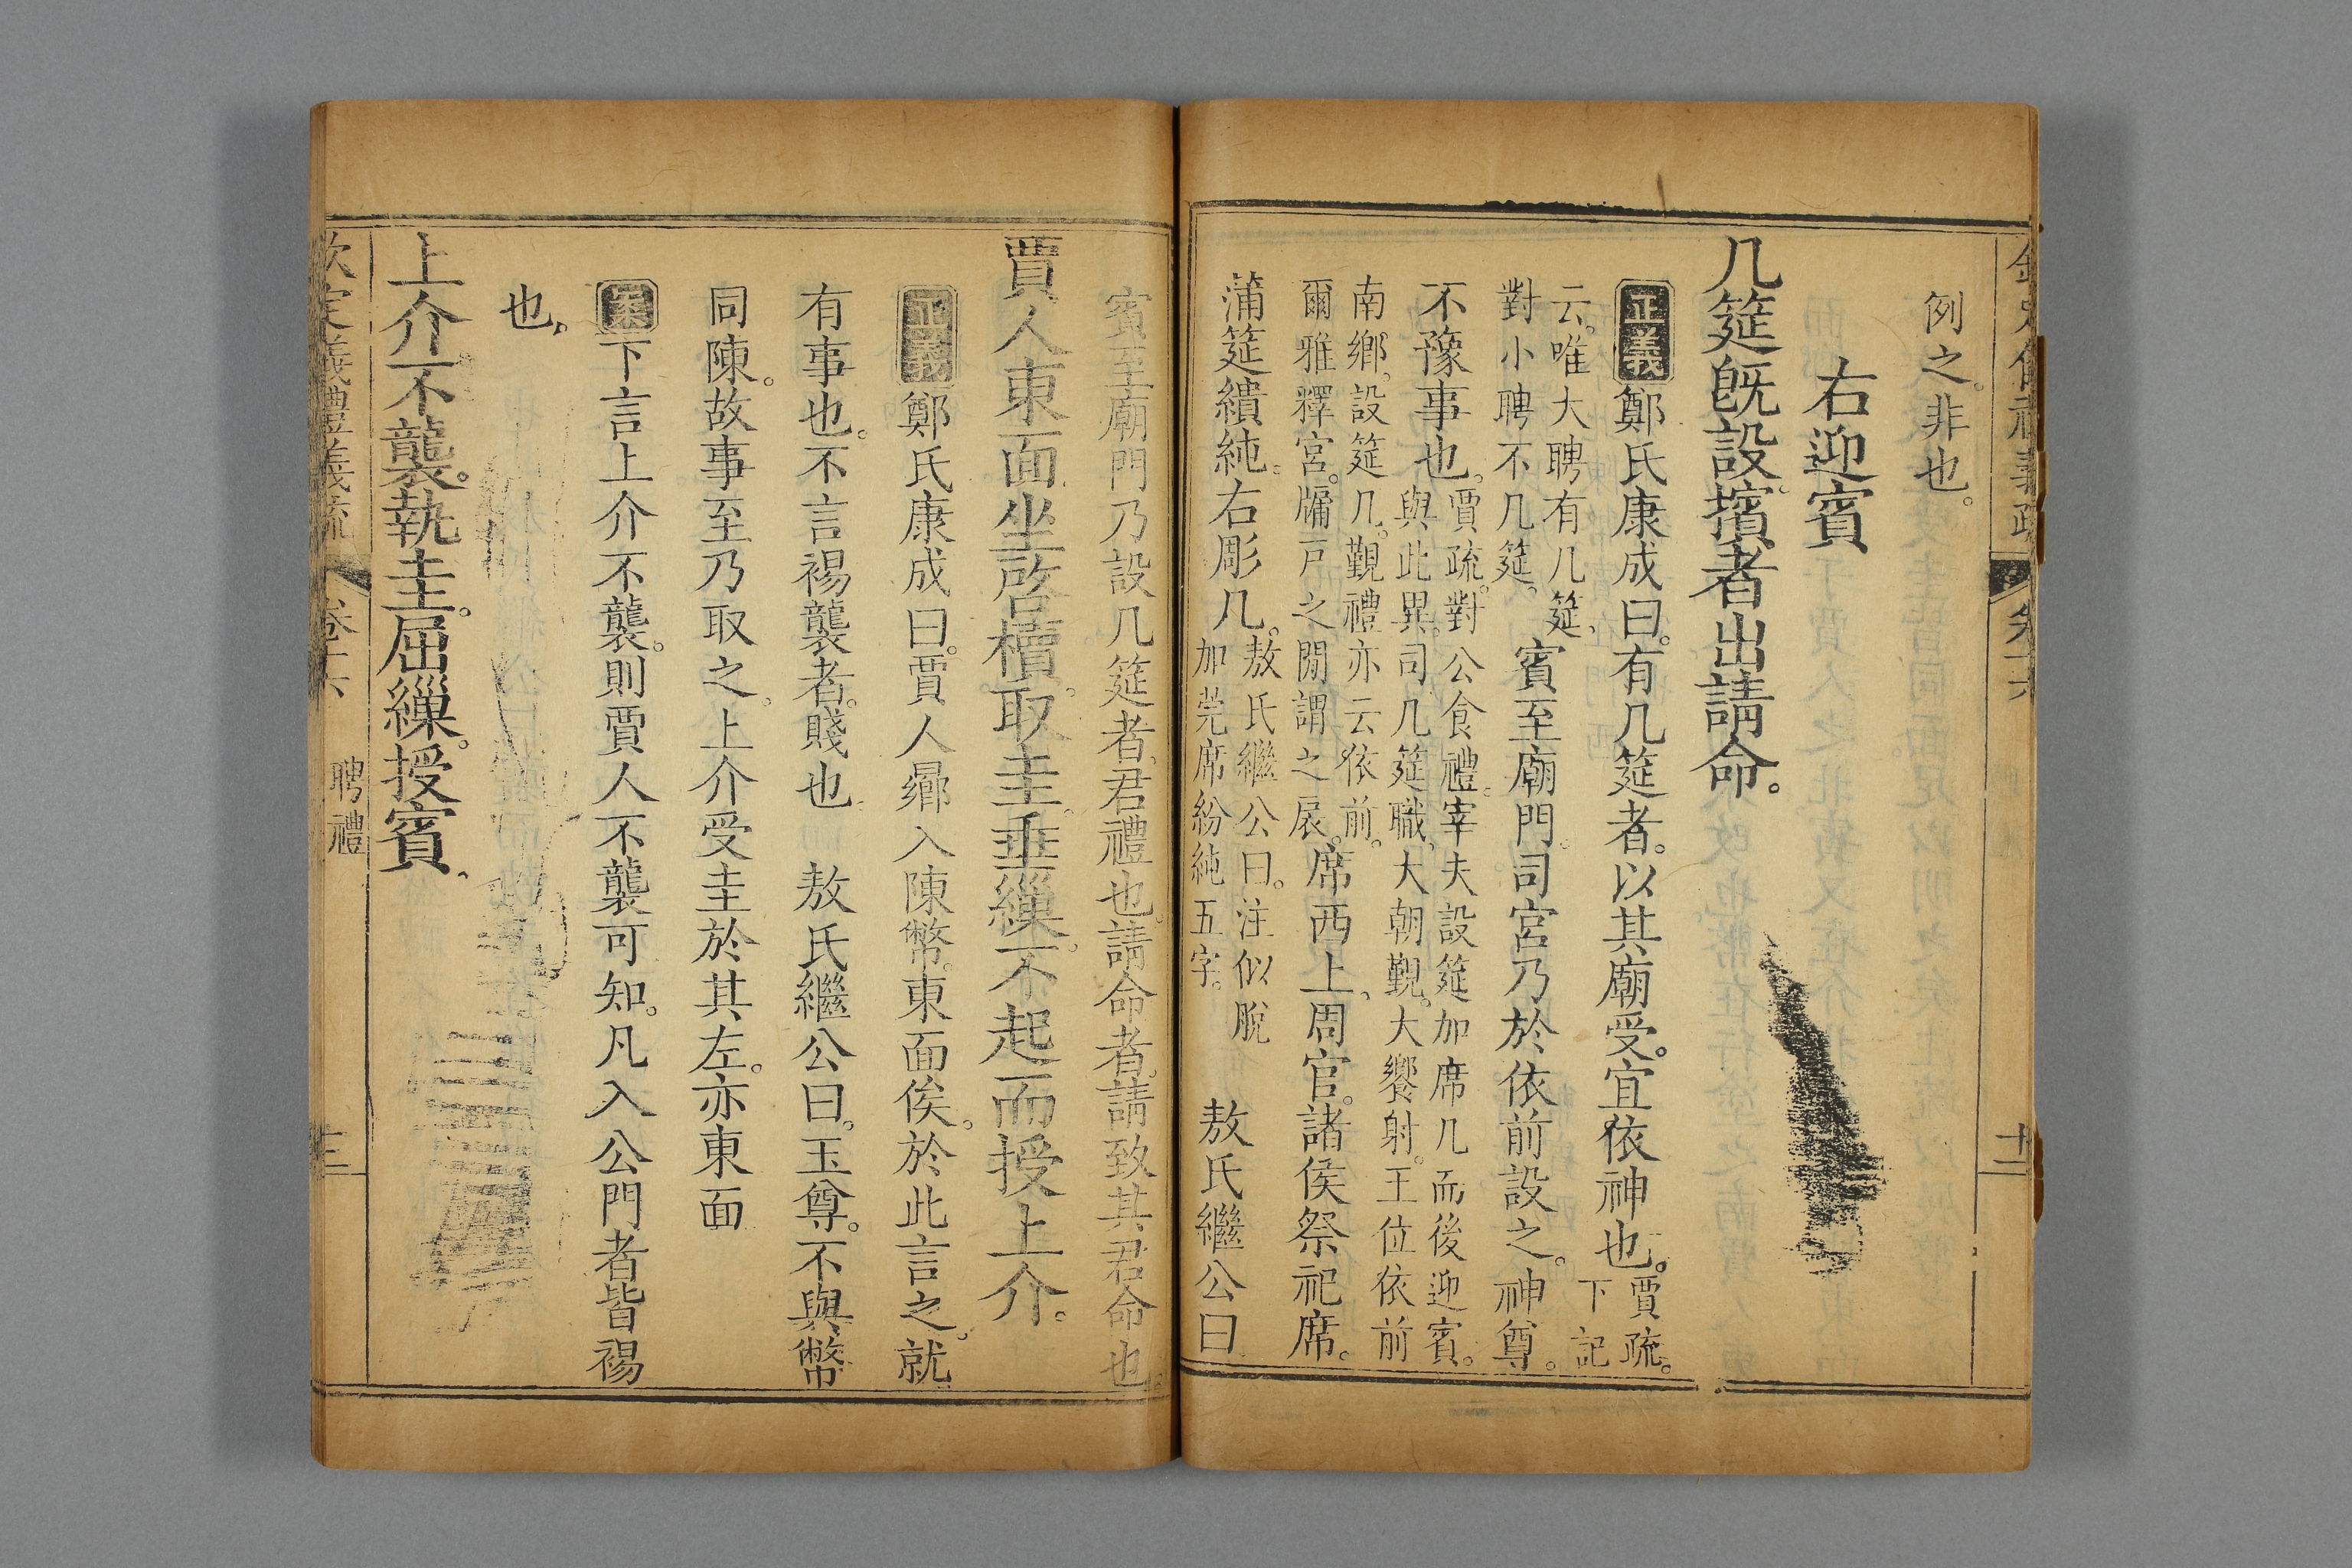 例之。非也。
右迎賓
几筵旣設。擯者出請命。
正義鄭氏康成曰。有几筵者。以其廟受。宜依神也。賈疏。下記
云。唯大聘有几筵、對小聘不几筵。賓至廟門。司宮乃於依前設之。神尊。
不豫事也。賈疏。對公食禮。宰夫設筵加席几而後迎賓。與此異。司几筵職、大朝覲。大饗射。王位依前
南鄉、設筵几。覲禮亦云依前。爾雅釋宮。牖戸之閒謂之扆。席西上、周官。諸侯祭祀席。
蒲筵繢純。右彫几。敖氏繼公曰。注似脫加莞席紛純五字。敖氏繼公曰
賓至廟門乃設几筵者、君禮也。請命者。請致其君命也
賈人東面坐啓櫝。取圭。垂繅。不起而授上介。
正義鄭氏康成曰。賈人鄉入陳幣。東面俟。於此言之、就
有事也。不言裼襲者。賤也。敖氏繼公曰。玉尊。不與幣
同陳。故事至乃取之。上介受圭於其左。亦東面
案下言上介不襲。則賈人不襲可知。凡入公門者皆裼
也。
上介不襲。執圭。屈繅。授賓。
聘禮